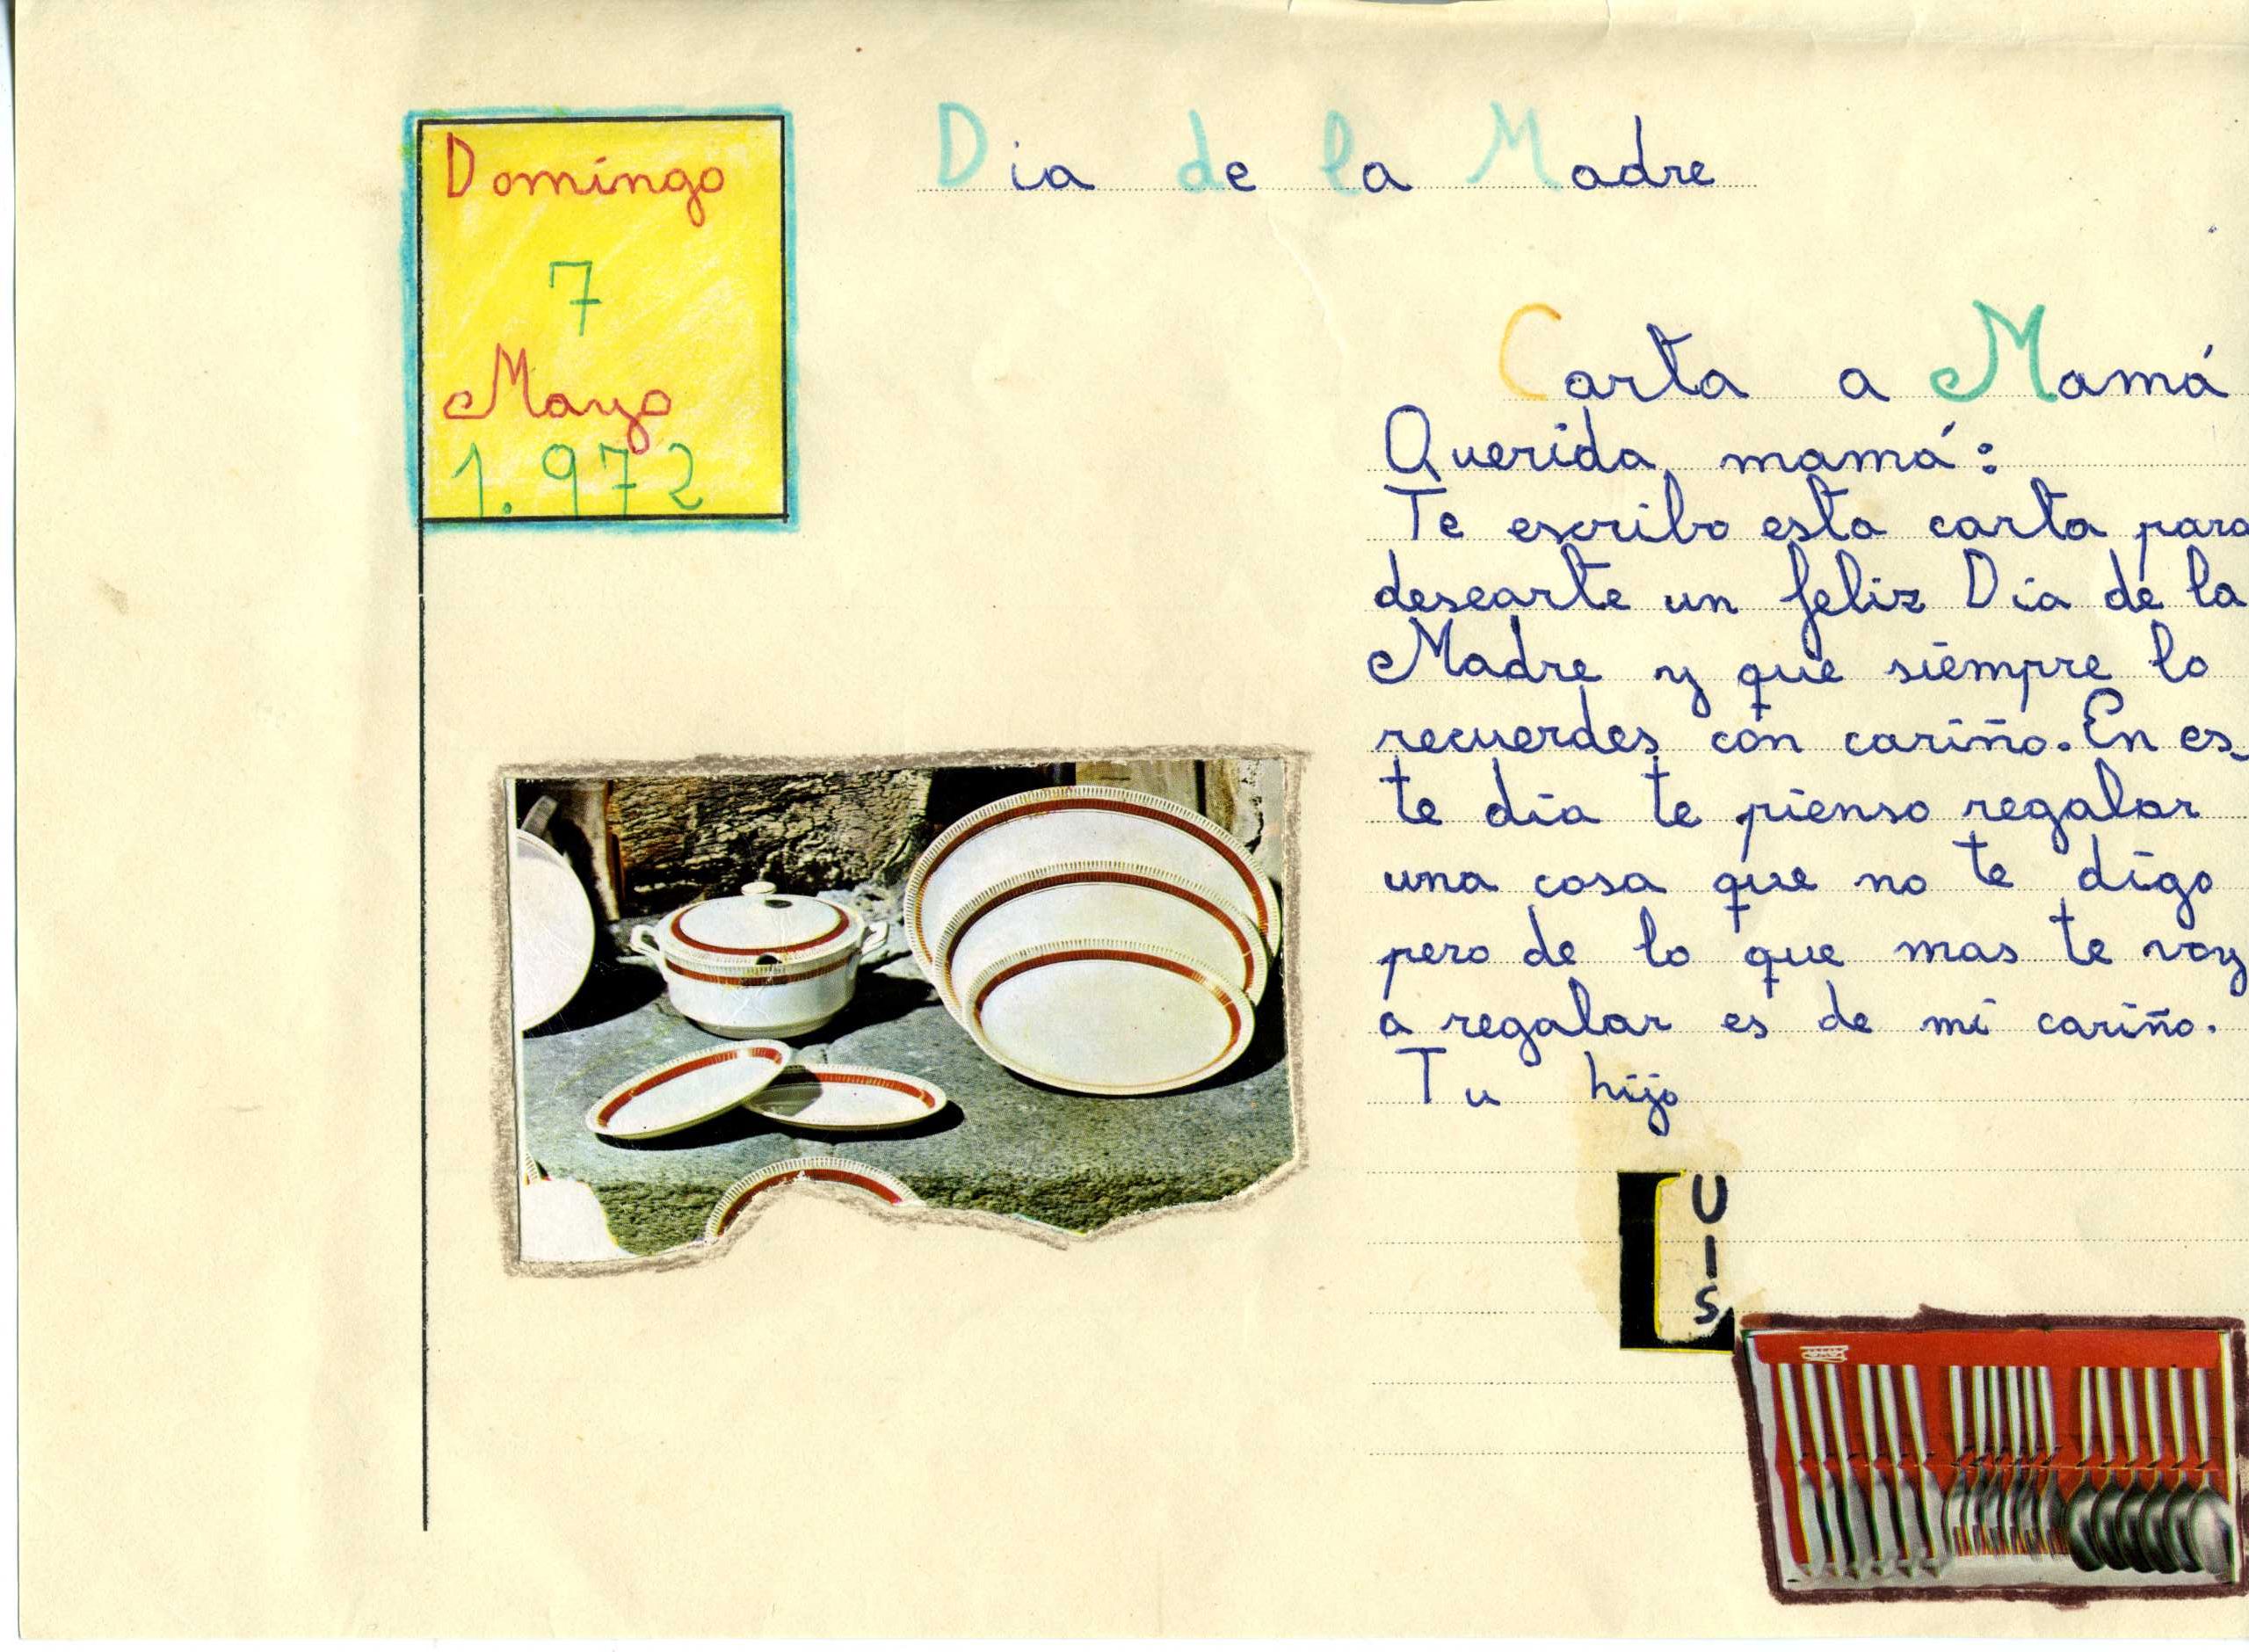 Domingo
7
Mayo
1.972
Dia de la Madre
Carta a Mamá
Querida mamá:
Te escribo esta carta para
desearte un feliz Dia de la
Madre y que siempre lo
recuerdes con cariño. En es_
te dia te pienso regalar
una cosa que no te digo
pero de lo que mas te voy
a regalar es de mi cariño.
Tu hijo
LUIS